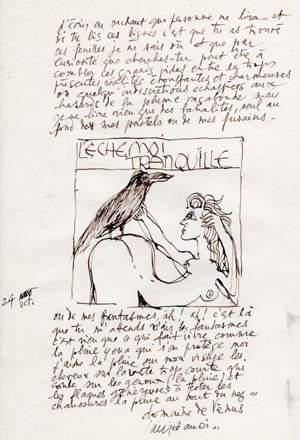 j'écris en sachant que personne ne lira et
si tu lis ces lignes c'est que tu as trouvé
ces feuilles je ne sais où et que par
curiosité que cherches-tu peut être à
combler ces grands vides entre les trop
présentes réalités étouffantes et charmeuses
on quelqu'indiscrétions échappées aux
hasards de la plume vagabonde mais
je ne livre rien que des banalités, seul au
fond de mes pastels ou de mes fusains.
LÈCHE MOI
TRANQUILLE
24 oct.
ou de mes fantasmes ah! ah! c'est là
que tu m'attends mais les fantasmes
c'est rien que ce qui fait vivre comme
la pluie y en a qui s'en protège moi
j'aime la pluie sur mon visage les
cheveux sur la robe trop courte que
coule sur les genoux (la pluie) et
les flaques généreuses à tester les
chaussures la pluie au bout du nez...
domaine de Vénus